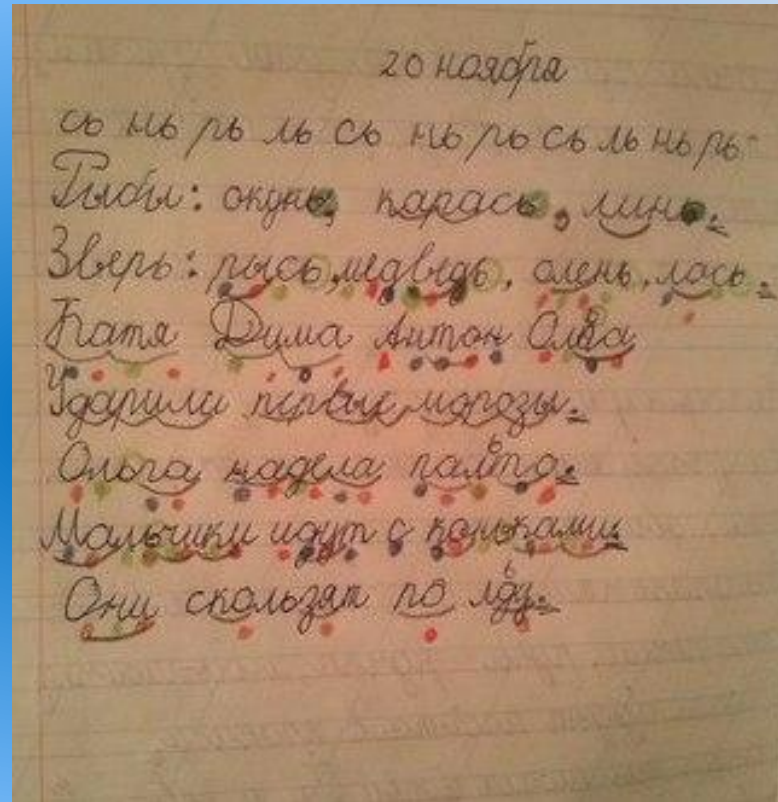 20 ноября
сь нь рь ль сь нь рь сь ль нь рь
Рыбы: окунь, карась, линь.
Зверь: рысь, медведь, олень, лось.
Катя Дима Антон Олва
Ударили первые морозы.
Ольга надела пальто.
Мальчики идут с коньками.
Они скользят по льду.